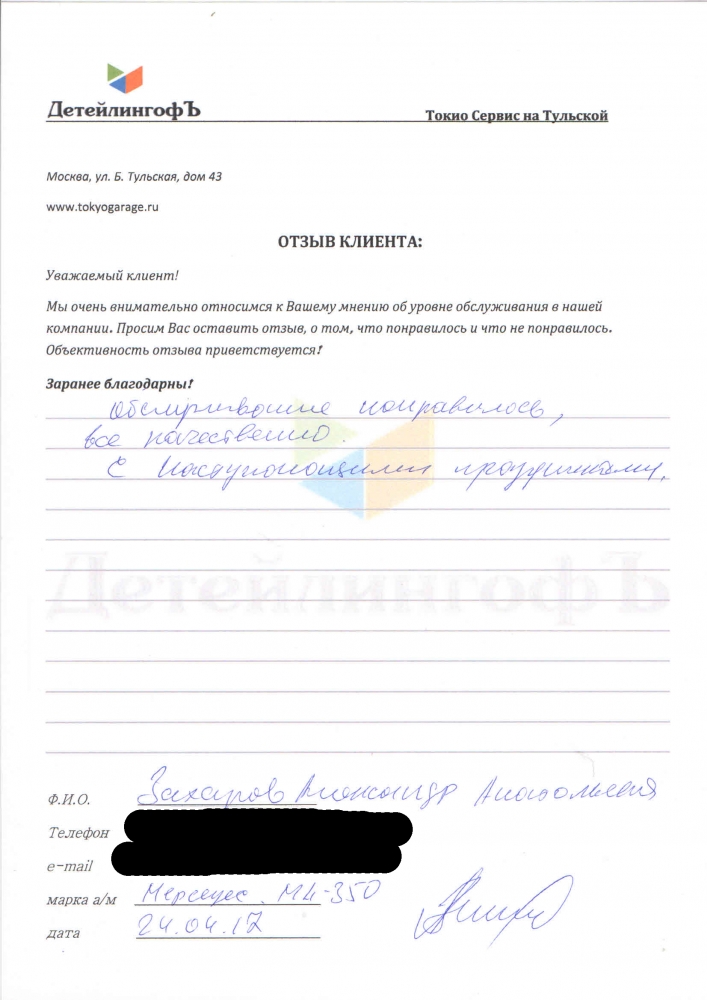 ДетейлингофЪ
Токио Сервис на Тульской
Москва, ул. Б. Тульская, дом 43
www.tokyogarage.ru
ОТЗЫВ КЛИЕНТА:
Уважаемый клиент!
Мы очень внимательно относимся к Вашему мнению об уровне обслуживания в нашей
компании. Просим Вас оставить отзыв, о том, что понравилось и что не понравилось.
Объективность отзыва приветствуется!
Заранее благодарны!
Обслуживание понравилось,
все качественно.
С наступающими праздниками.
ДетейлингофЪ
Ф.И.О. Захаров Александр Анатольевич
Телефон
e-mail
марка а/м Мерседес МЛ-350
дата 24.04.17